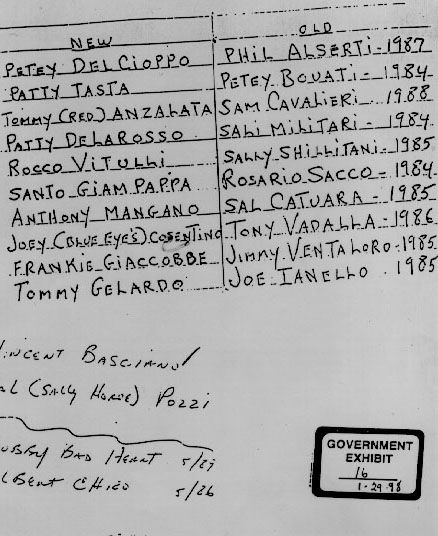 NEW OLD
PETEY DELCIOPPO PHIL ALSERTI-1987
PATTY TASTA PETEY BOVATI- 1984-
TOMMY (RED) ANZALATA SAM CAVALIERI 1988
PATTY DELAROSSO SALI MILITARI- 1984
ROCCO VITULLI SALLY SHILLITANI- 1985
SANTO GIAMPAPPA ROSARIO SACCO- 1984
ANTHONY MANGANO SAL CATUARA- 1985
JOEY (BLUE EYE'S) COSENTINO TONY VADALLA-1986
FRANKIE GIACCOBBE JIMMY VENTALORO-1985
TOMMY GELARDO JOE IANELLO 1985
INCENT BASCIANO
AL (SALLY HORSE) POZZI
UBBY BAD HEART 5/27
LBERT CHICO 5/26
GOVERNMENT
EXHIBIT
16
1-29-98